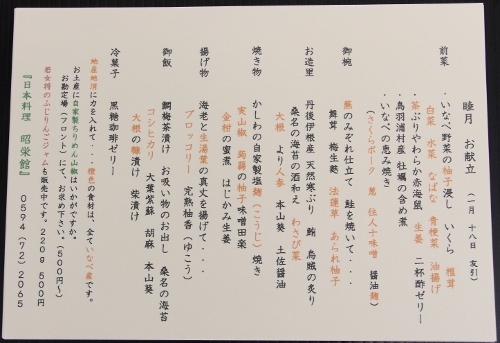 睦月 お献立 (一月 十八日 友引)
前菜
・いなべ野菜の柚子浸し いくら 椎茸
白菜 水菜 なばな 青梗菜 油揚げ
・茶ぶりやわらか赤海鼠 生姜 二杯酢ゼリー
・鳥羽浦村産 牡蠣の含め煮
・いなべの恵み焼き
(さくらポーク 葱 住人十味噌 醤油麹)
御椀
蕪のみぞれ仕立て 鮭を焼いて・・・
舞茸 梅生麩 法蓮草 あられ柚子
お造里
丹後伊根産 天然寒ぶり 鮪 烏賊の炙り
桑名の海苔の酒和え わさび菜
大根 より人参 本山葵 土佐醤油
焼き物
かしわの自家製塩麹(こうじ)焼き
実山椒 蒟蒻の柚子味噌田楽
金柑の蜜煮 はじかみ生姜
揚げ物
海老と生湯葉の真丈を揚げて・・・
ブロッコリー 完熟柚香(ゆこう)
御飯
鯛梅茶漬け お吸い物のお出し 桑名の海苔
コシヒカリ 大葉紫蘇 胡麻 本山葵
大根の糠漬け 柴漬け
冷菓子 黒糖珈琲ゼリー
地産地消に力を入れて・・・橙色の食材は、全ていなべ産です。
お土産に自家製ちりめん山椒はいかがですか。
お勘定場(フロント)にて、お求め下さい。(500円〜)
若女将のふじりんごジャムも販売中です。220g 500円
『日本料理 昭栄館』 0594(72)2065